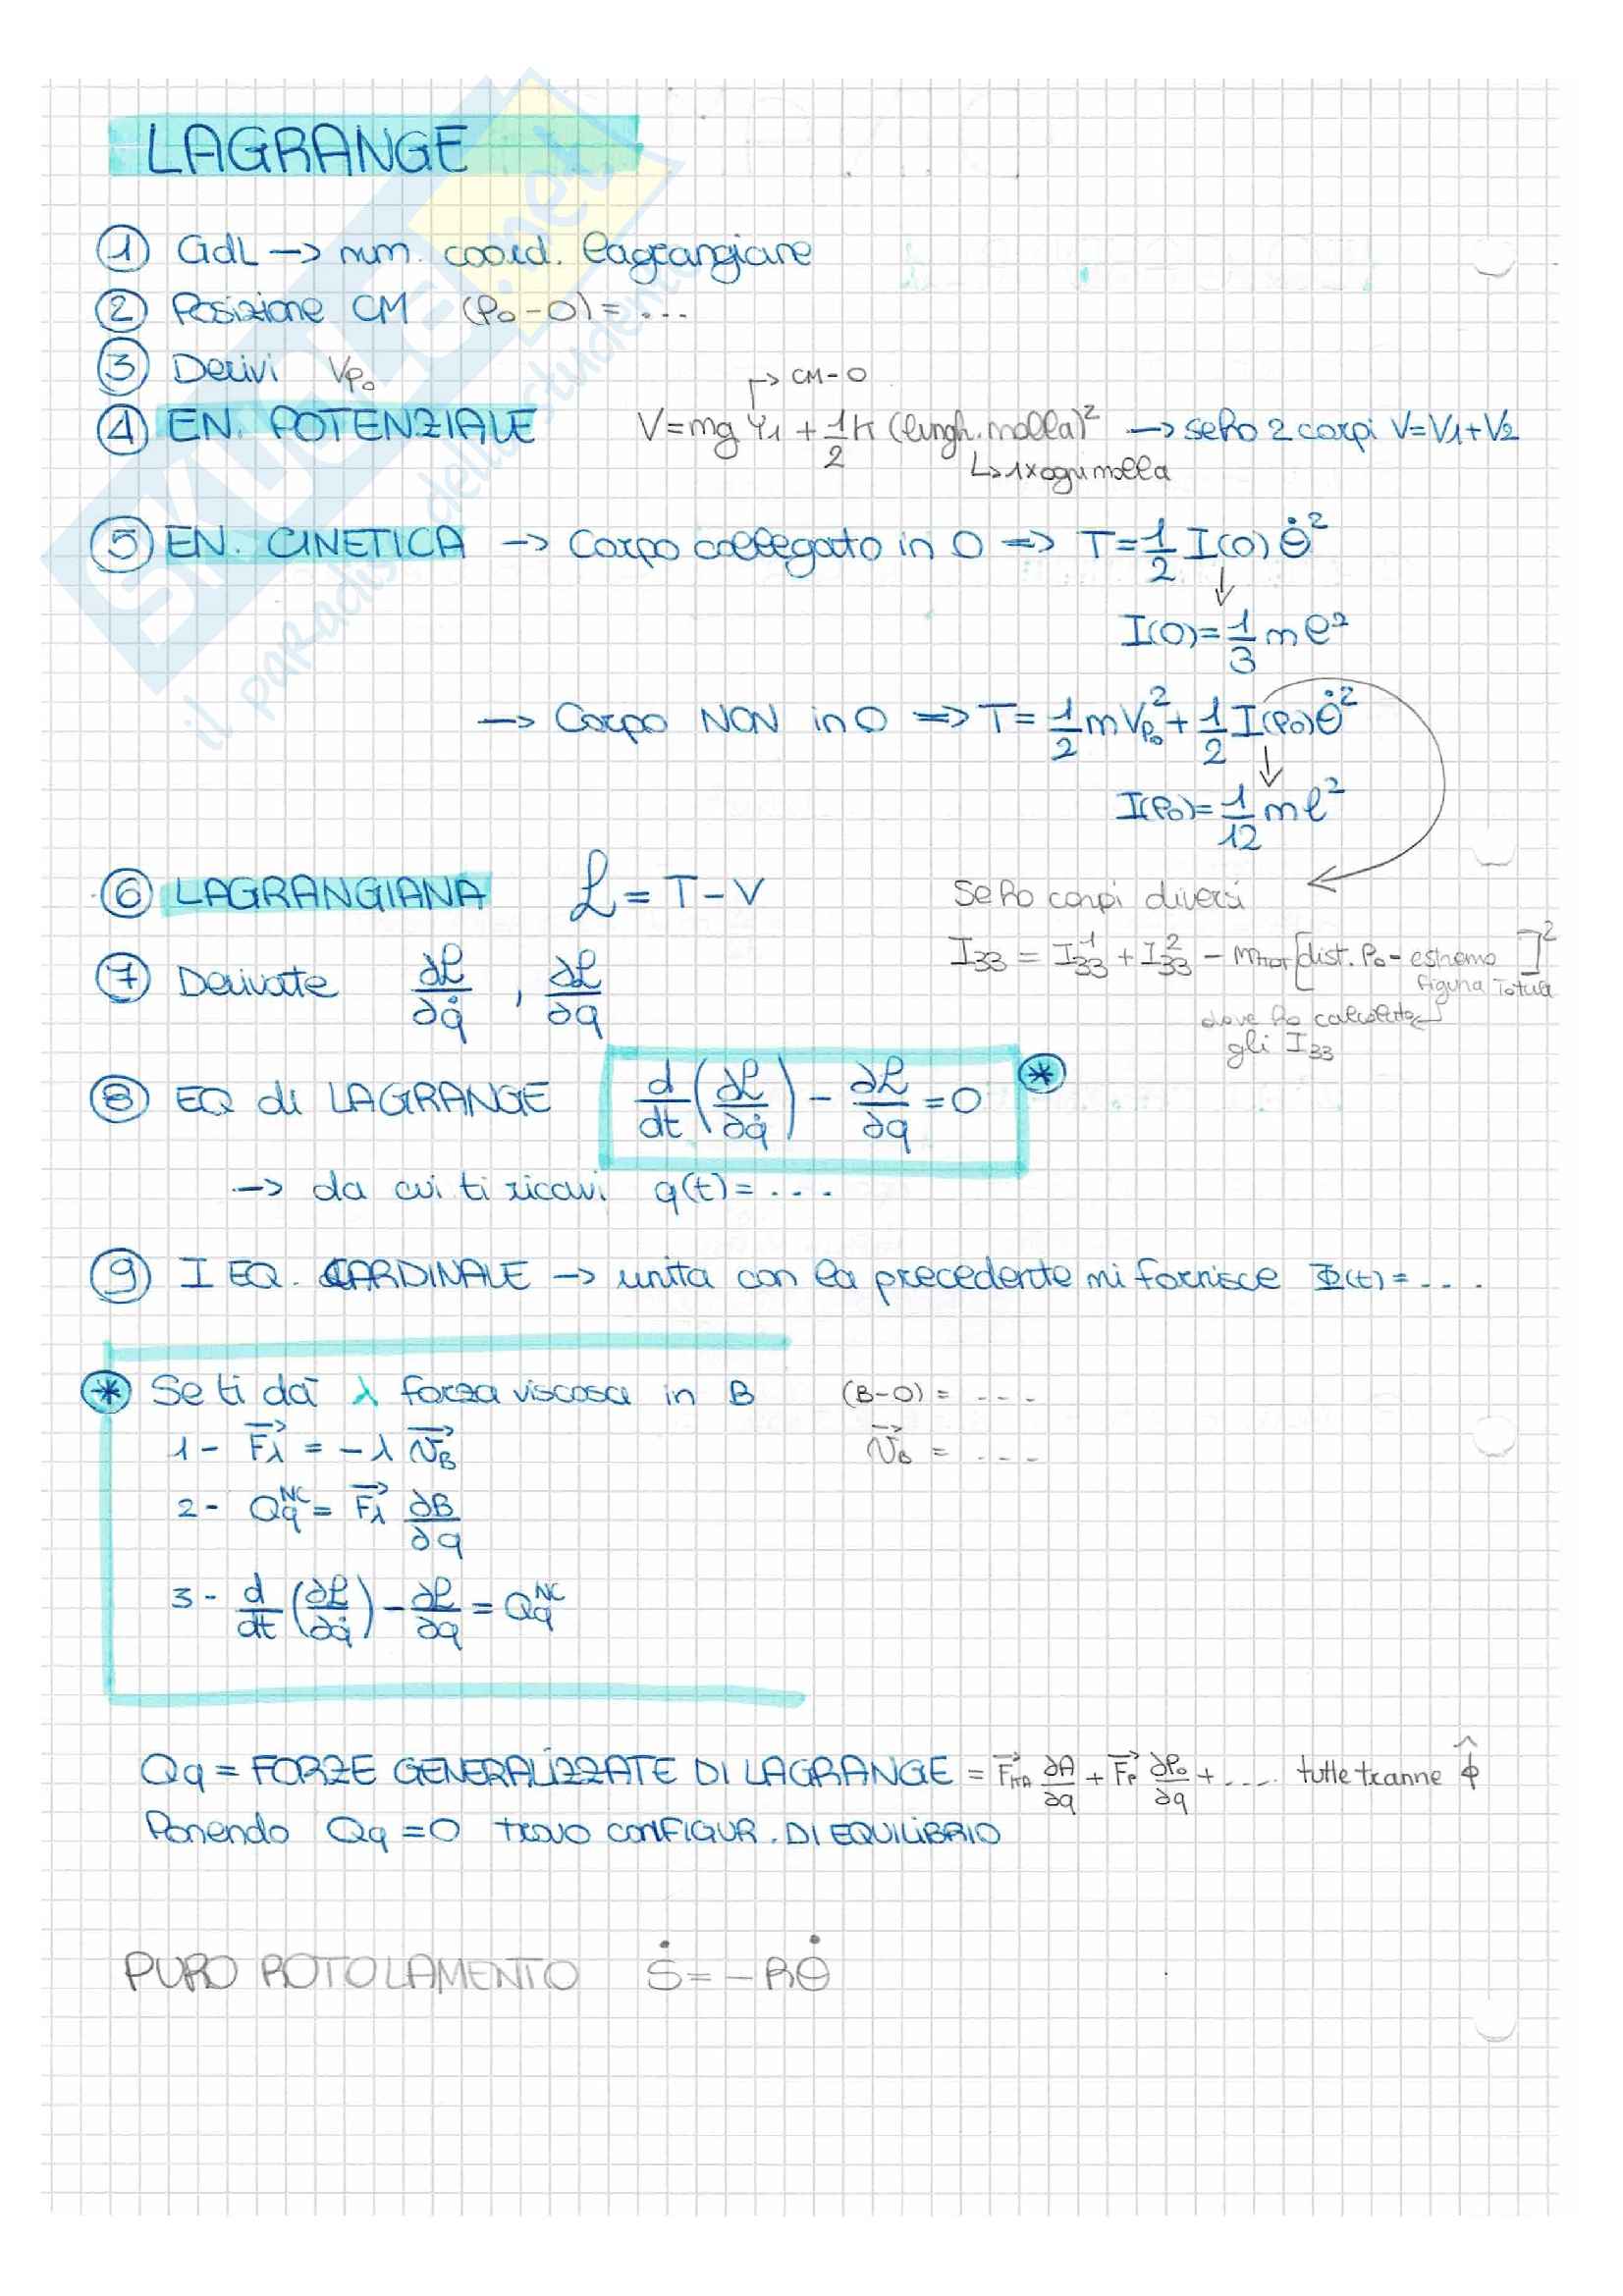 LAGRANGE
① GdL → num. coord. lagrangiane
② Posizione CM (P₀-O) = ...
③ Derivi V_P₀
→ CM-O
④ EN. POTENZIALE V = mg Y₁ + 1/2 k (lungh. molla)² → se ho 2 corpi V = V₁ + V₂
↳ 1 x ogni molla
⑤ EN. CINETICA → Corpo collegato in O ⇒ T = 1/2 I(O) θ̇²
↓
I(O) = 1/3 m ℓ²
→ Corpo NON in O ⇒ T = 1/2 m V_P₀² + 1/2 I(P₀) θ̇²
↓
I(P₀) = 1/12 m ℓ²
⑥ LAGRANGIANA ℒ = T - V
Se ho corpi diversi
I₃₃ = I₃₃¹ + I₃₃² - m_TOT [dist. P₀ - estremo figura totale]²
dove ho calcolato gli I₃₃
⑦ Derivate ∂ℒ/∂q̇ , ∂ℒ/∂q
⑧ EQ di LAGRANGE d/dt (∂ℒ/∂q̇) - ∂ℒ/∂q = 0 *
→ da cui ti ricavi q(t) = ...
⑨ I EQ. CARDINALE → unita con la precedente mi fornisce Φ(t) = ...
* Se ti dà λ forza viscosa in B (B-O) = ...
1 - F⃗λ = -λ v⃗_B v⃗_B = ...
2 - Qq^NC = F⃗λ ∂B/∂q
3 - d/dt (∂ℒ/∂q̇) - ∂ℒ/∂q = Qq^NC
Qq = FORZE GENERALIZZATE DI LAGRANGE = F⃗ ∂A/∂q + F⃗p ∂P₀/∂q + .... tutte tranne ϕ̂
Ponendo Qq = 0 trovo CONFIGUR. DI EQUILIBRIO
PURO ROTOLAMENTO Ṡ = -Rθ̇
SKUOLA.net
il paradiso dello studente